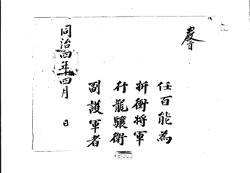 任百能為
折衝將軍
行龍驤衛
副護軍者
同治四年四月 日